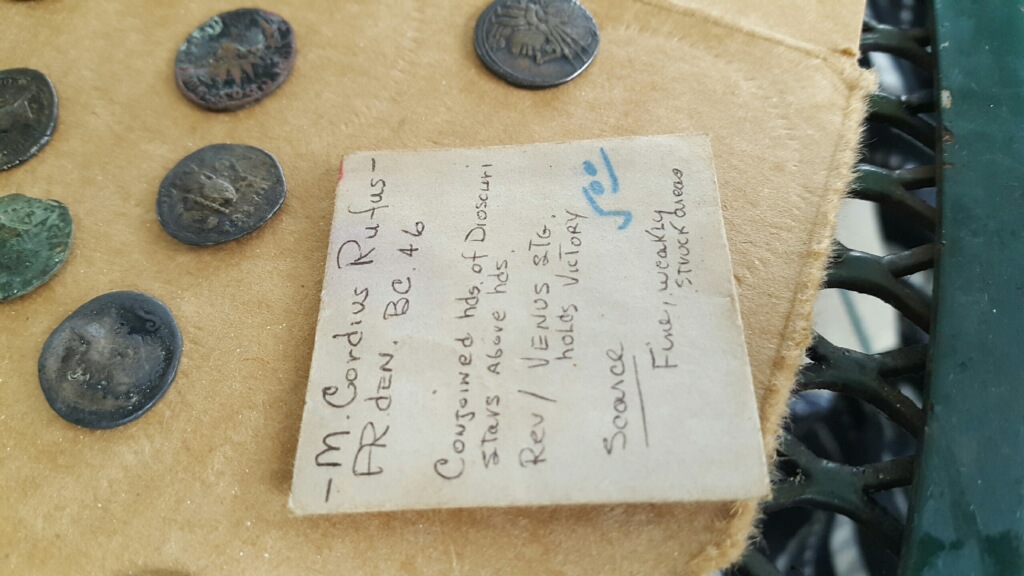 - M. Cordius Rufus -
AR. DEN. BC. 46
Conjoined hds. of Dioscuri
stars Above hds.
Rev/ VENUS STG.
holds VICTORY
500
Scarce
Fine, weakly
struck areas